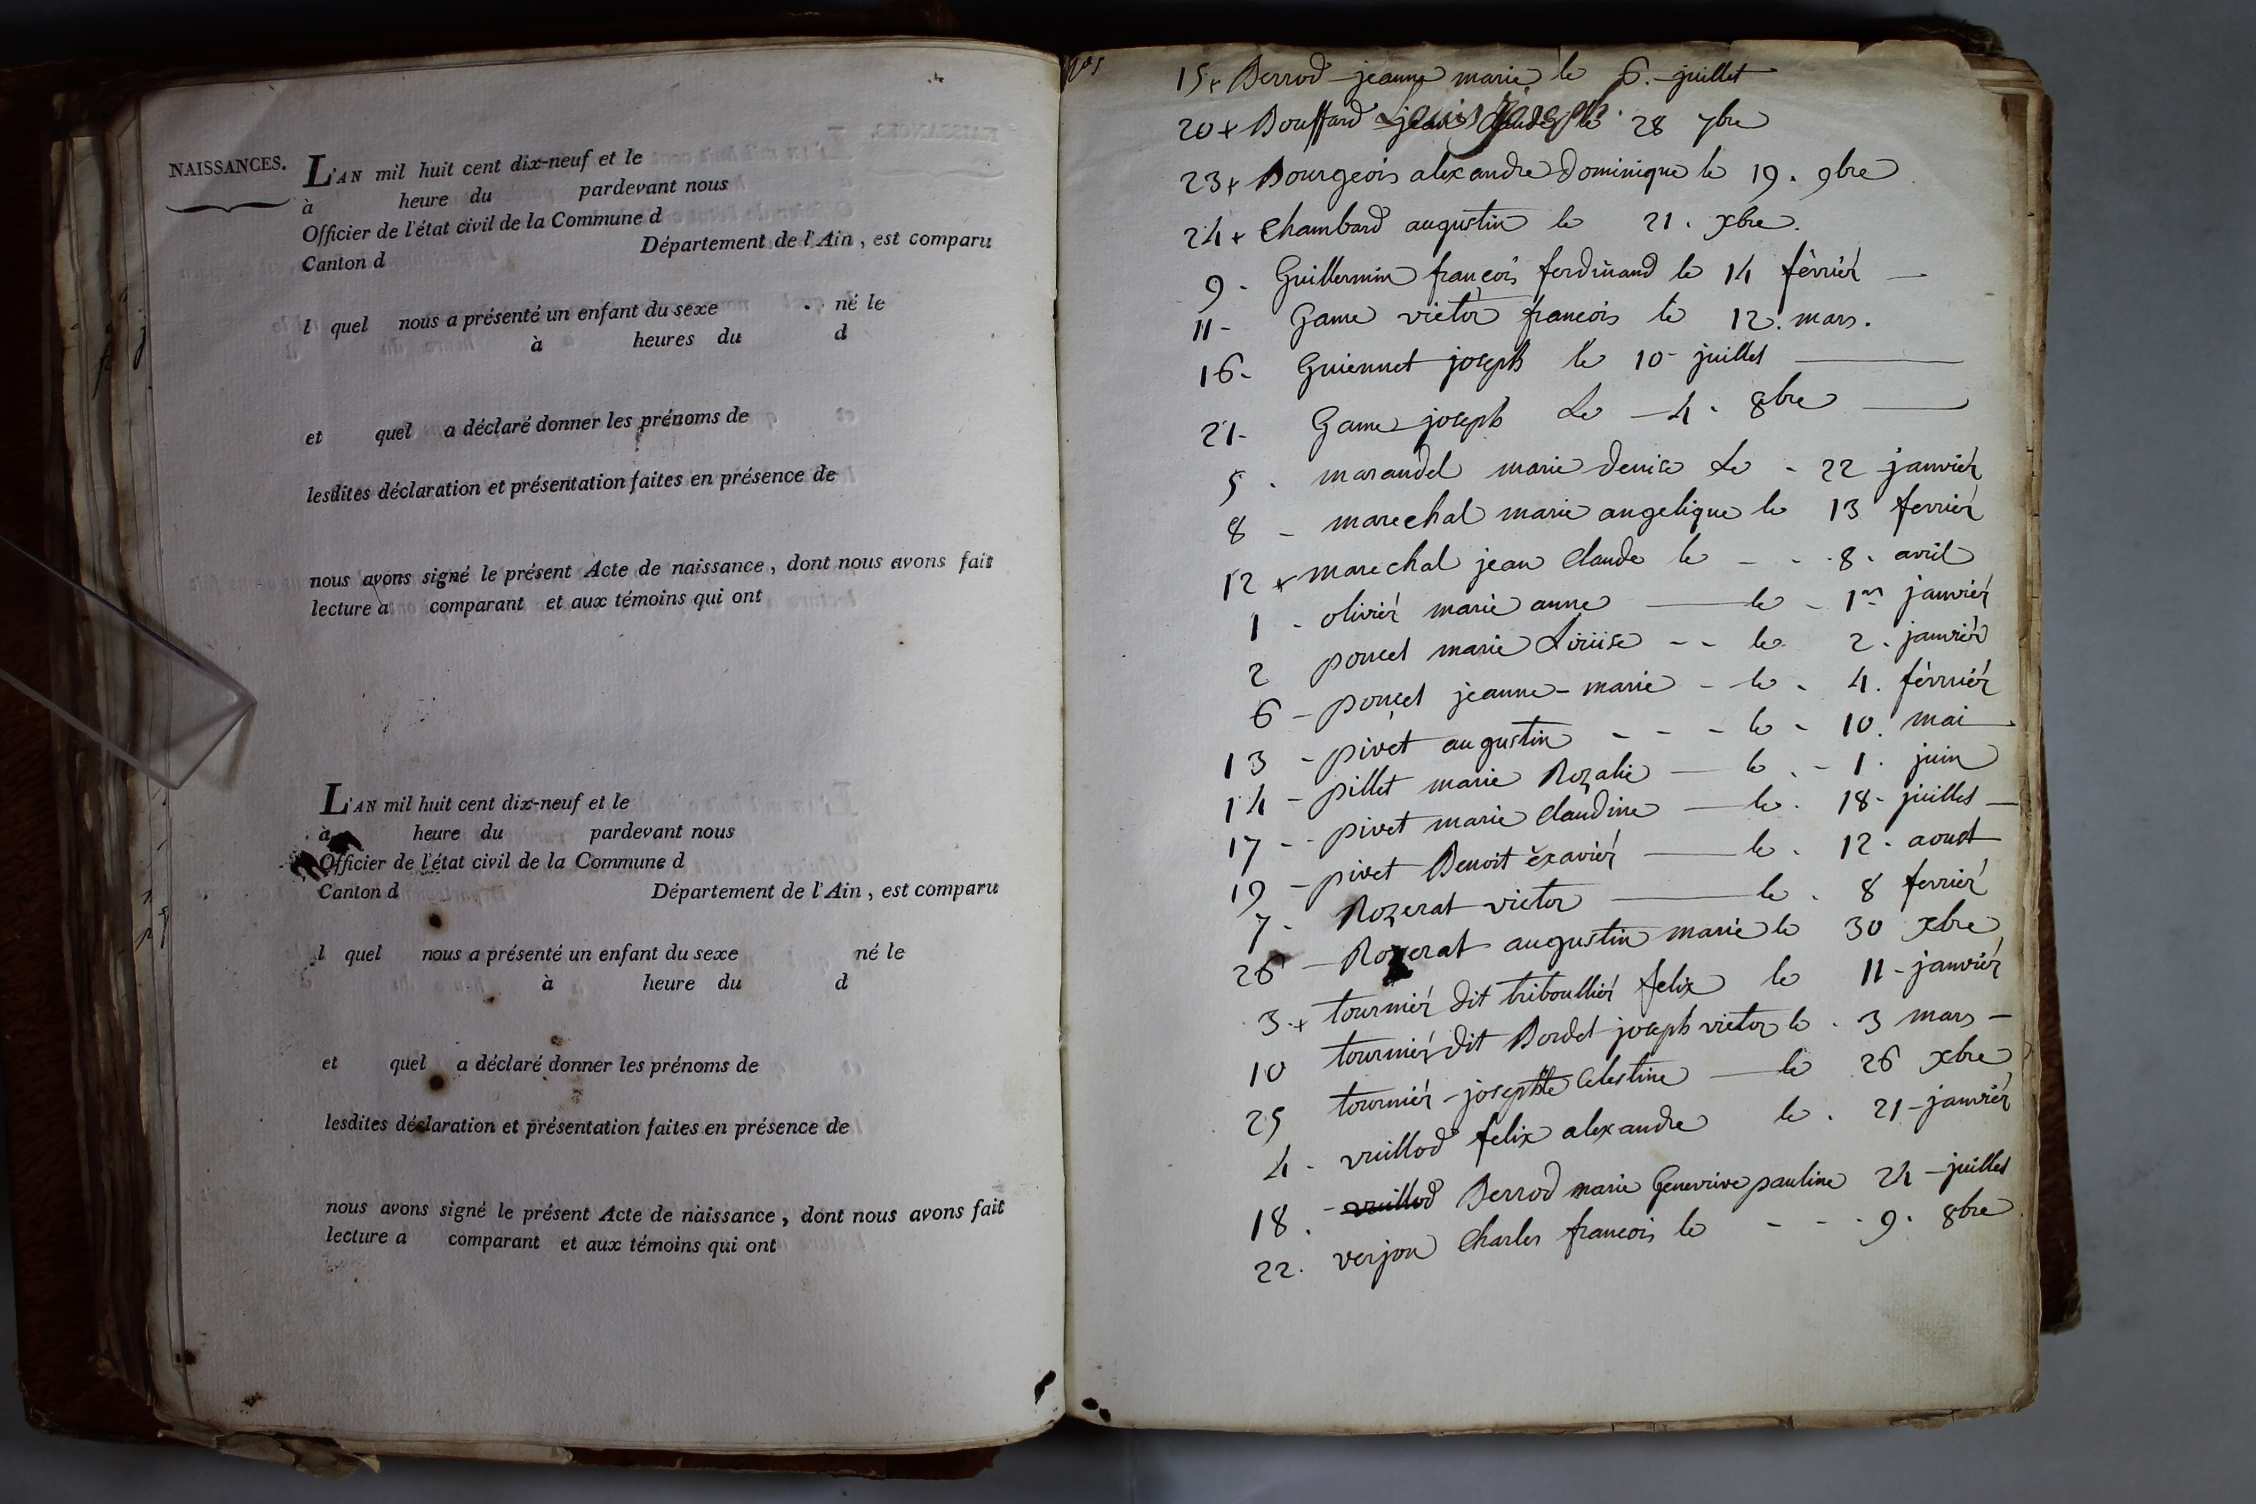 NAISSANCES.
L'AN mil huit cent dix-neuf et le
à heure du pardevant nous
Officier de l'état civil de la Commune d
Canton d Département de l'Ain, est comparu
l quel nous a présenté un enfant du sexe né le
à heures du d
et quel a déclaré donner les prénoms de
lesdites déclaration et présentation faites en présence de
nous avons signé le présent Acte de naissance, dont nous avons fait
lecture a comparant et aux témoins qui ont
L'AN mil huit cent dix-neuf et le
à heure du pardevant nous
Officier de l'état civil de la Commune d
Canton d Département de l'Ain, est comparu
l quel nous a présenté un enfant du sexe né le
à heure du d
et quel a déclaré donner les prénoms de
lesdites déclaration et présentation faites en présence de
nous avons signé le présent Acte de naissance, dont nous avons fait
lecture a comparant et aux témoins qui ont
15+ Derrod jeanne marie le 6. juillet
20+ Bouffard Louis joseph le 28 7bre
23+ Bourgeois alexandre dominique le 19. 9bre
24+ Chambard augustin le 21. xbre.
9- Guillermin françois ferdinand le 14 février
11- Game victor francois le 12. mars.
16- Guiennet joseph le 10- juillet
21- Game joseph Le 4. 8bre
5. marandel marie denise Le - 22 janvier
8 - marechal marie angelique le 13 fevrier
12+ marechal jean Claude le - - 8. avril
1 - olivier marie anne le - 1er janvier
2 poncet marie Louise - - le 2. janvier
6 - poncet jeanne-marie - le - 4. février
13 - pivet augustin - - - le - 10. mai
14 - pillet marie Rozalie le - 1. juin
17 - pivet marie Claudine le. 18- juillet
19 - pivet Benoit éxavier le. 12. aoust
7- Rozerat victor le. 8 fevrier
26 - Rozerat augustin marie le 30 xbre
3.+ tournier dit triboullier felix le 11- janvier
10 tournier dit Bordet joseph victor le. 3 mars
25 tournier - josephte Celestine le 26 xbre
4 - vuillod felix alexandre le. 21- janvier
18. - vuillod Derrod marie Genevieve pauline 24 - juillet
22. verjon Charles francois le - - - 9. 8bre